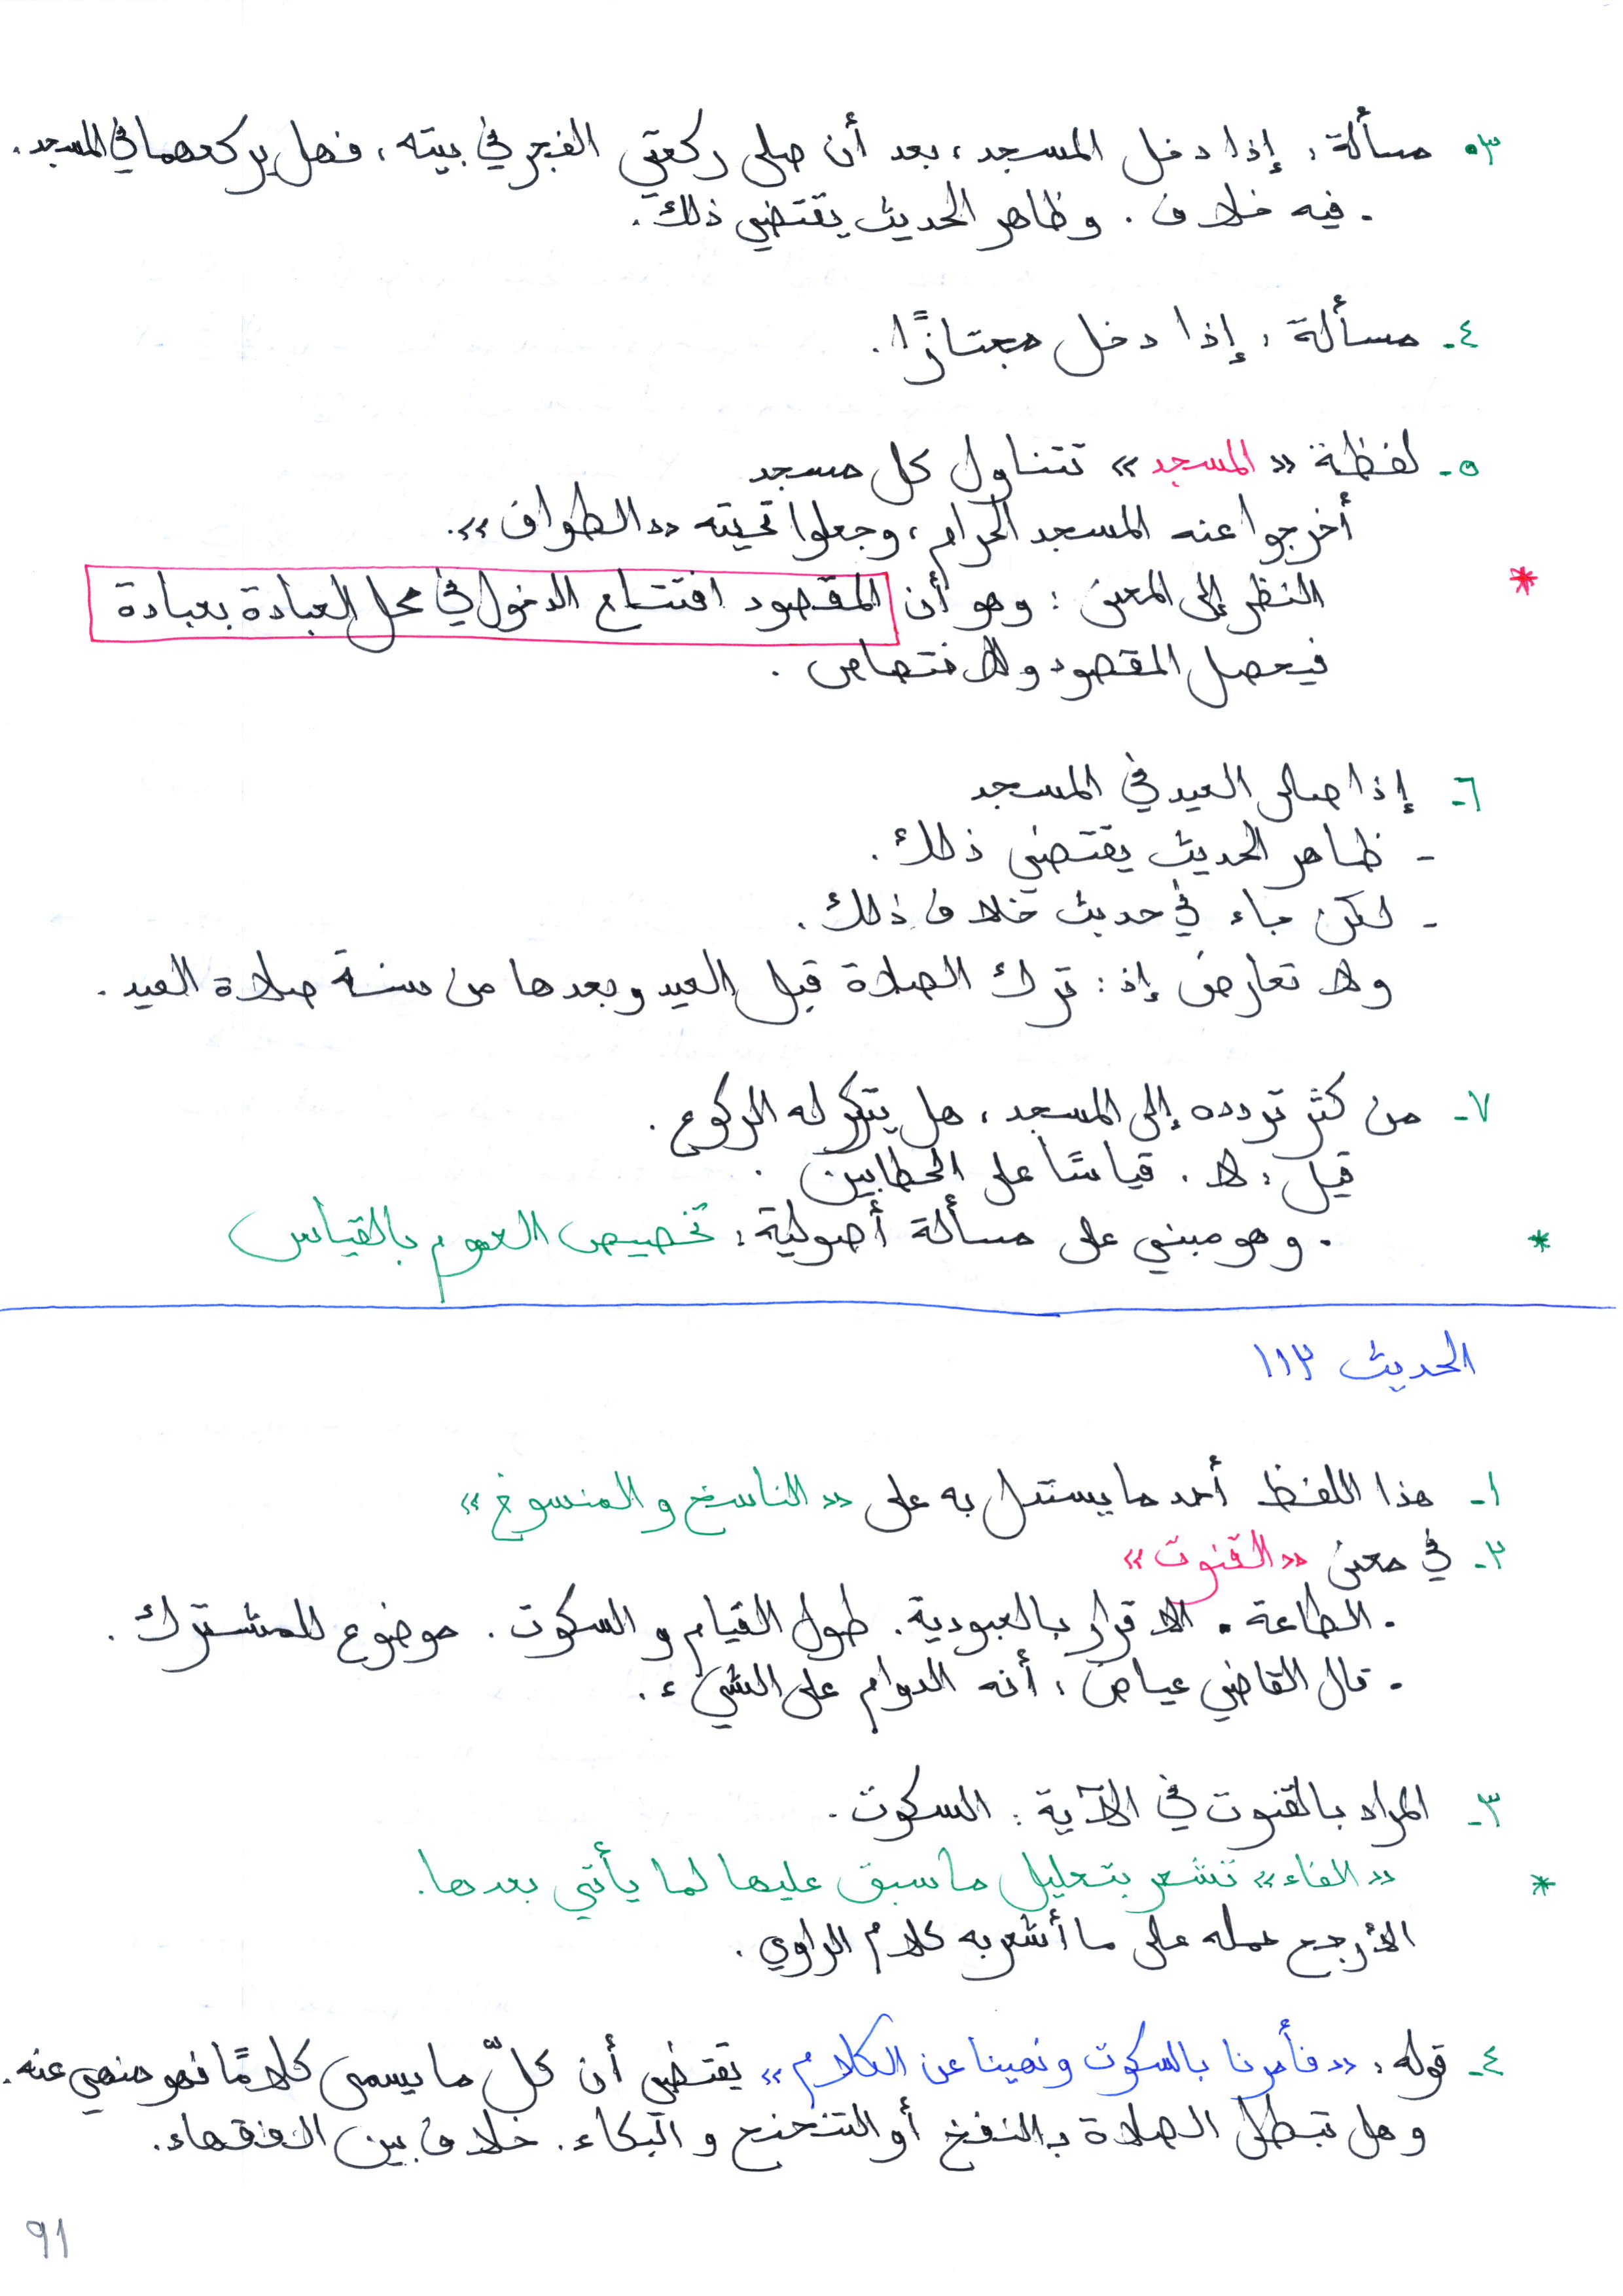 ٣. مسألة: إذا دخل المسجد، بعد أن صلى ركعتي الفجر في بيته، فهل يركعهما في المسجد.
. فيه خلاف. وظاهر الحديث يقتضي ذلك.
٤- مسألة: إذا دخل مجتازًا.
٥- لفظة «المسجد» تتناول كل مسجد
أخرجوا عنه المسجد الحرام، وجعلوا تحيته «الطواف».
* النظر إلى المعنى: وهو أن المقصود افتتاح الدخول في محل العبادة بعبادة
فيحصل المقصود ولا اختصاص.
٦- إذا صلى العيد في المسجد
- ظاهر الحديث يقتضي ذلك.
- لكن جاء في حديث خلاف ذلك.
ولا تعارض إذ: ترك الصلاة قبل العيد وبعدها من سنة صلاة العيد.
٧- من كثر تردده إلى المسجد، هل يتكرر له الركوع.
قيل: لا. قياسًا على الحطابين.
* . وهو مبني على مسألة أصولية: تخصيص العموم بالقياس
الحديث ١١٣
١- هذا اللفظ أحد ما يستدل به على «الناسخ والمنسوخ»
٢- في معنى «القنوت»
. الطاعة. الاقرار بالعبودية. طول القيام والسكوت. موضوع للمشترك.
. قال القاضي عياض: أنه الدوام على الشيء.
٣- المراد بالقنوت في الآية: السكوت.
* «الفاء» تشعر بتعليل ما سبق عليها لما يأتي بعدها.
الأرجح حمله على ما أشعر به كلام الراوي.
٤- قوله: «فأمرنا بالسكوت ونهينا عن الكلام» يقتضي أن كلّ ما يسمى كلامًا فهو منهي عنه.
وهل تبطل الصلاة بالنفخ أو التنحنح والبكاء. خلاف بين الفقهاء.
91